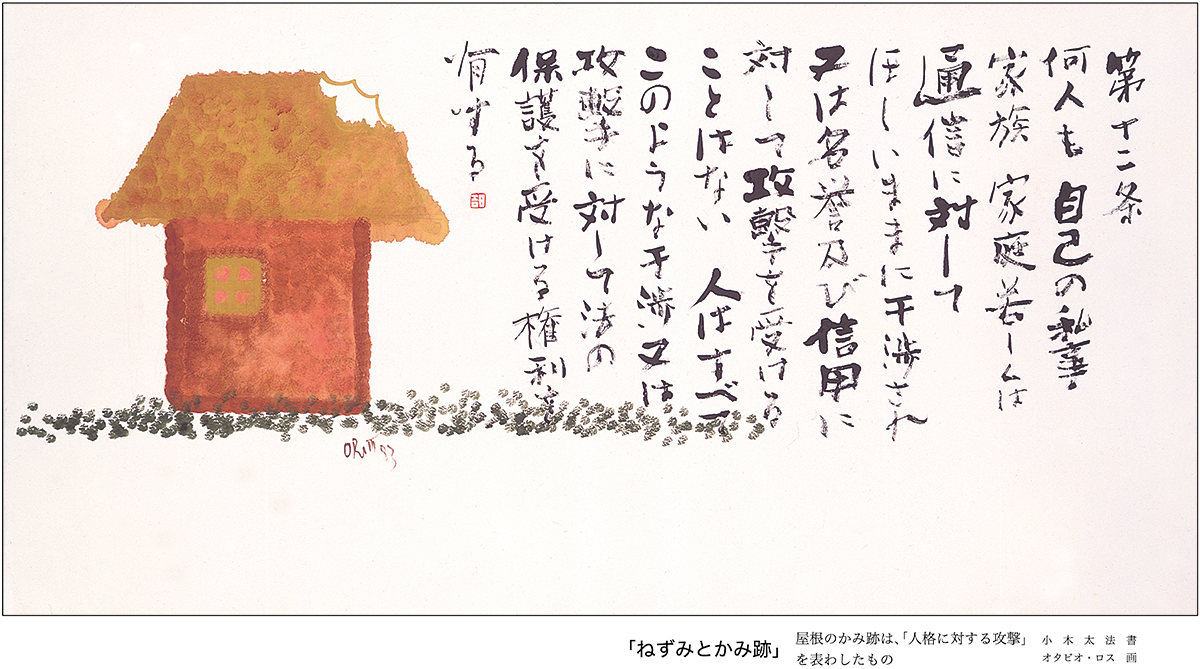 第十二条
何人も 自己の私事
家族 家庭若しくは
通信に対して
ほしいままに干渉され
又は名誉及び信用に
対して攻撃を受ける
ことはない 人はすべて
このような干渉又は
攻撃に対して法の
保護を受ける権利を
有する
「ねずみとかみ跡」
屋根のかみ跡は、「人格に対する攻撃」
を表わしたもの
小木太法 書
オタビオ・ロス 画